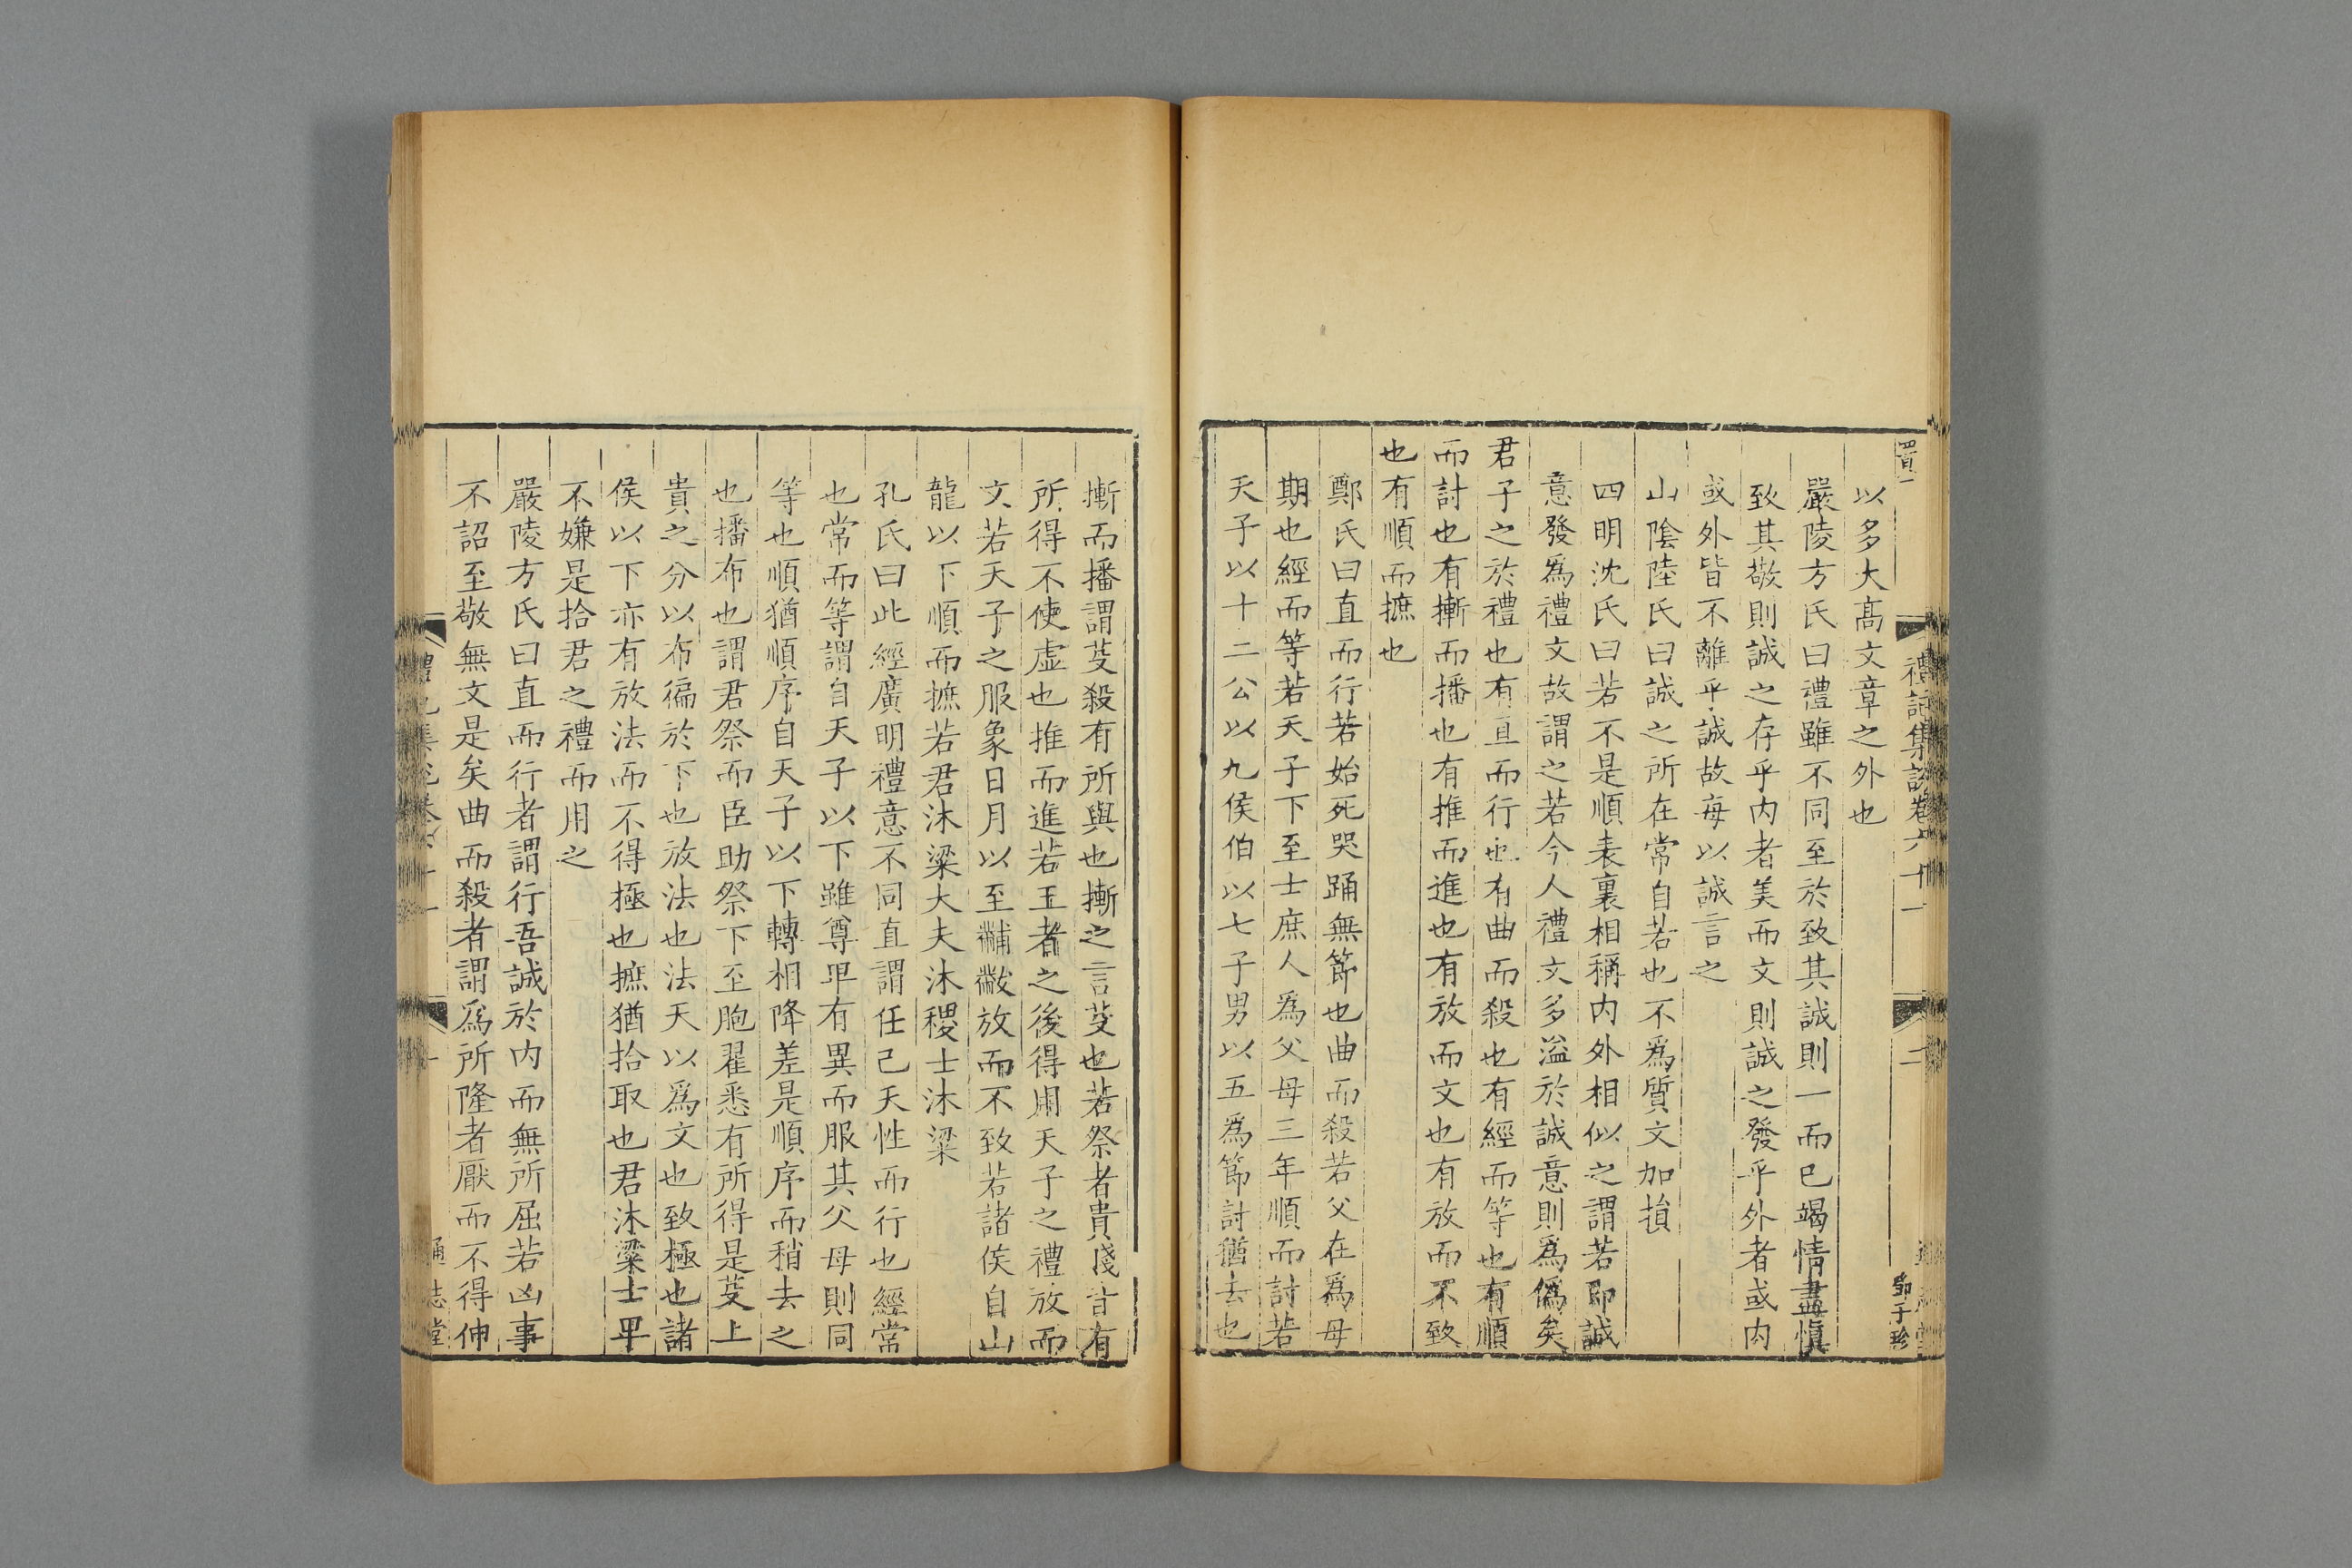 禮記集說卷六十一
二
鄒子珍
以多大髙文章之外也
嚴陵方氏曰禮雖不同至於致其誠則一而已竭情盡慎
致其敬則誠之存乎内者美而文則誠之發乎外者或内
或外皆不離乎誠故每以誠言之
山陰陸氏曰誠之所在常自若也不爲質文加損
四明沈氏曰若不是順表裏相稱内外相似之謂若即誠
意發爲禮文故謂之若今人禮文多溢於誠意則爲僞矣
君子之於禮也有直而行也有曲而殺也有經而等也有順
而討也有摲而播也有推而進也有放而文也有放而不致
也有順而摭也
鄭氏曰直而行若始死哭踊無節也曲而殺若父在爲母
期也經而等若天子下至士庶人爲父母三年順而討若
天子以十二公以九侯伯以七子男以五爲節討猶去也
摲而播謂芟殺有所與也摲之言芟也若祭者貴賤皆有
所得不使虚也推而進若王者之後得用天子之禮放而
文若天子之服象日月以至黼黻放而不致若諸侯自山
龍以下順而摭若君沐粱大夫沐稷士沐粱
孔氏曰此經廣明禮意不同直謂任己天性而行也經常
也常而等謂自天子以下雖尊卑有異而服其父母則同
等也順猶順序自天子以下轉相降差是順序而稍去之
也播布也謂君祭而臣助祭下至胞翟悉有所得是芟上
貴之分以布徧於下也放法也法天以爲文也致極也諸
侯以下亦有放法而不得極也摭猶拾取也君沐粱士卑
不嫌是拾君之禮而用之
嚴陵方氏曰直而行者謂行吾誠於内而無所屈若凶事
不詔至敬無文是矣曲而殺者謂爲所隆者厭而不得伸